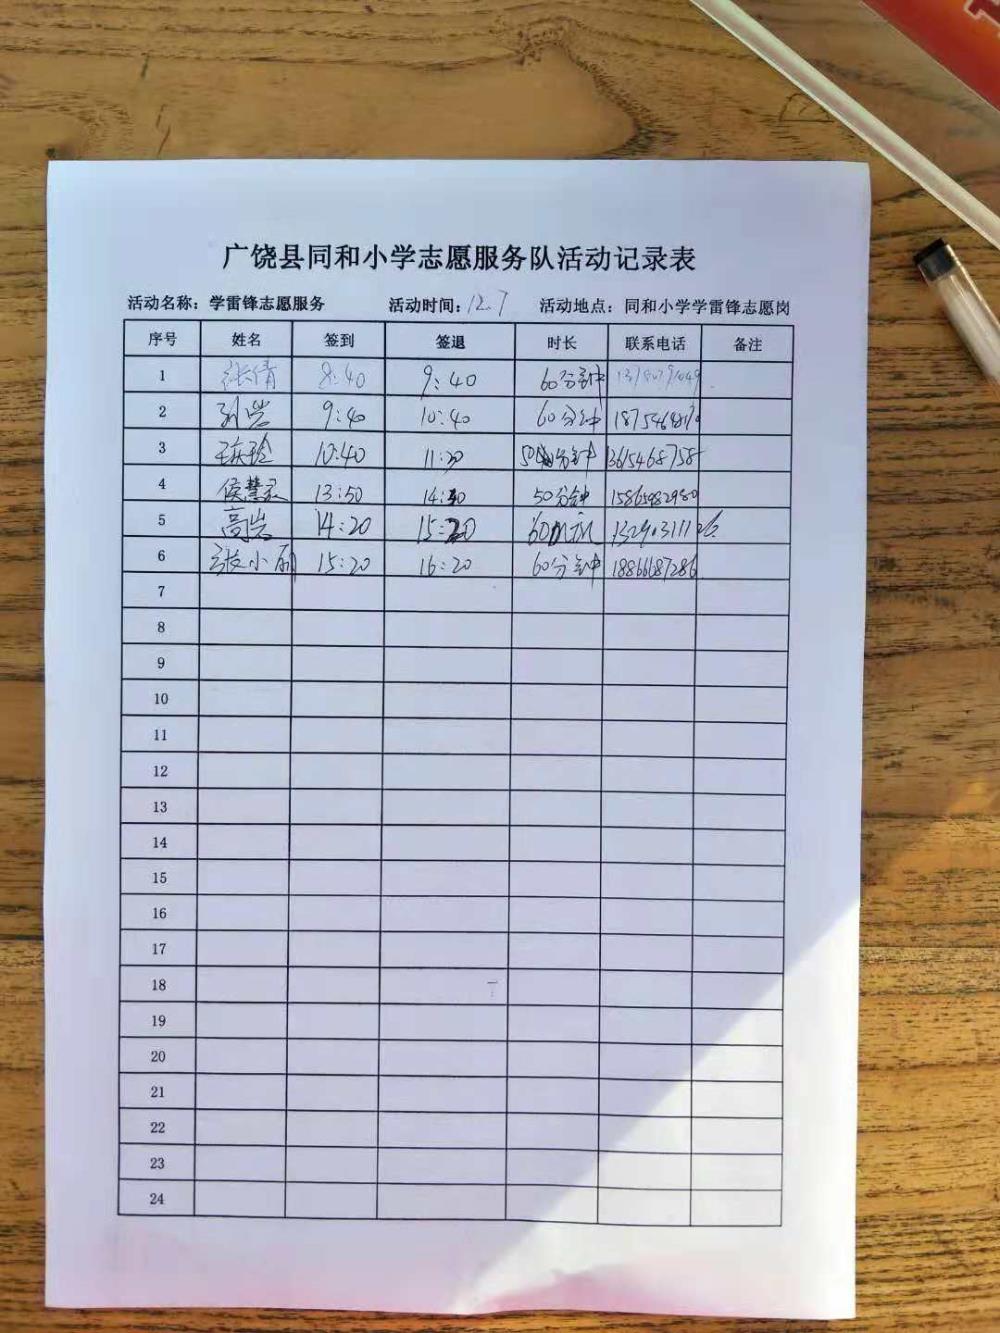 广饶县同和小学志愿服务队活动记录表
活动名称：学雷锋志愿服务 活动时间：12.7 活动地点：同和小学学雷锋志愿岗
序号 姓名 签到 签退 时长 联系电话 备注
1 张倩 8:40 9:40 60分钟
2 刘岩 9:40 10:40 60分钟
3 10:40 11:30 分钟
4 侯慧 13:50 50分钟 15865982980
5 高岩 14:20 15:20
6 张小丽 15:20 16:20 60分钟 18866687286
7
8
9
10
11
12
13
14
15
16
17
18
19
20
21
22
23
24